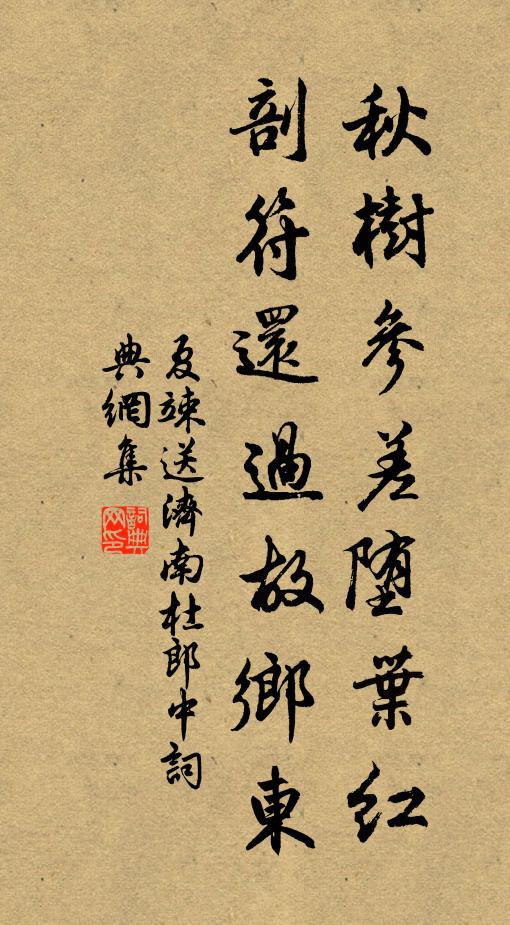 秋樹參差墮葉紅
剖符還過故鄉東
夏竦送濟南杜郎中詞
典網集
詞典網印